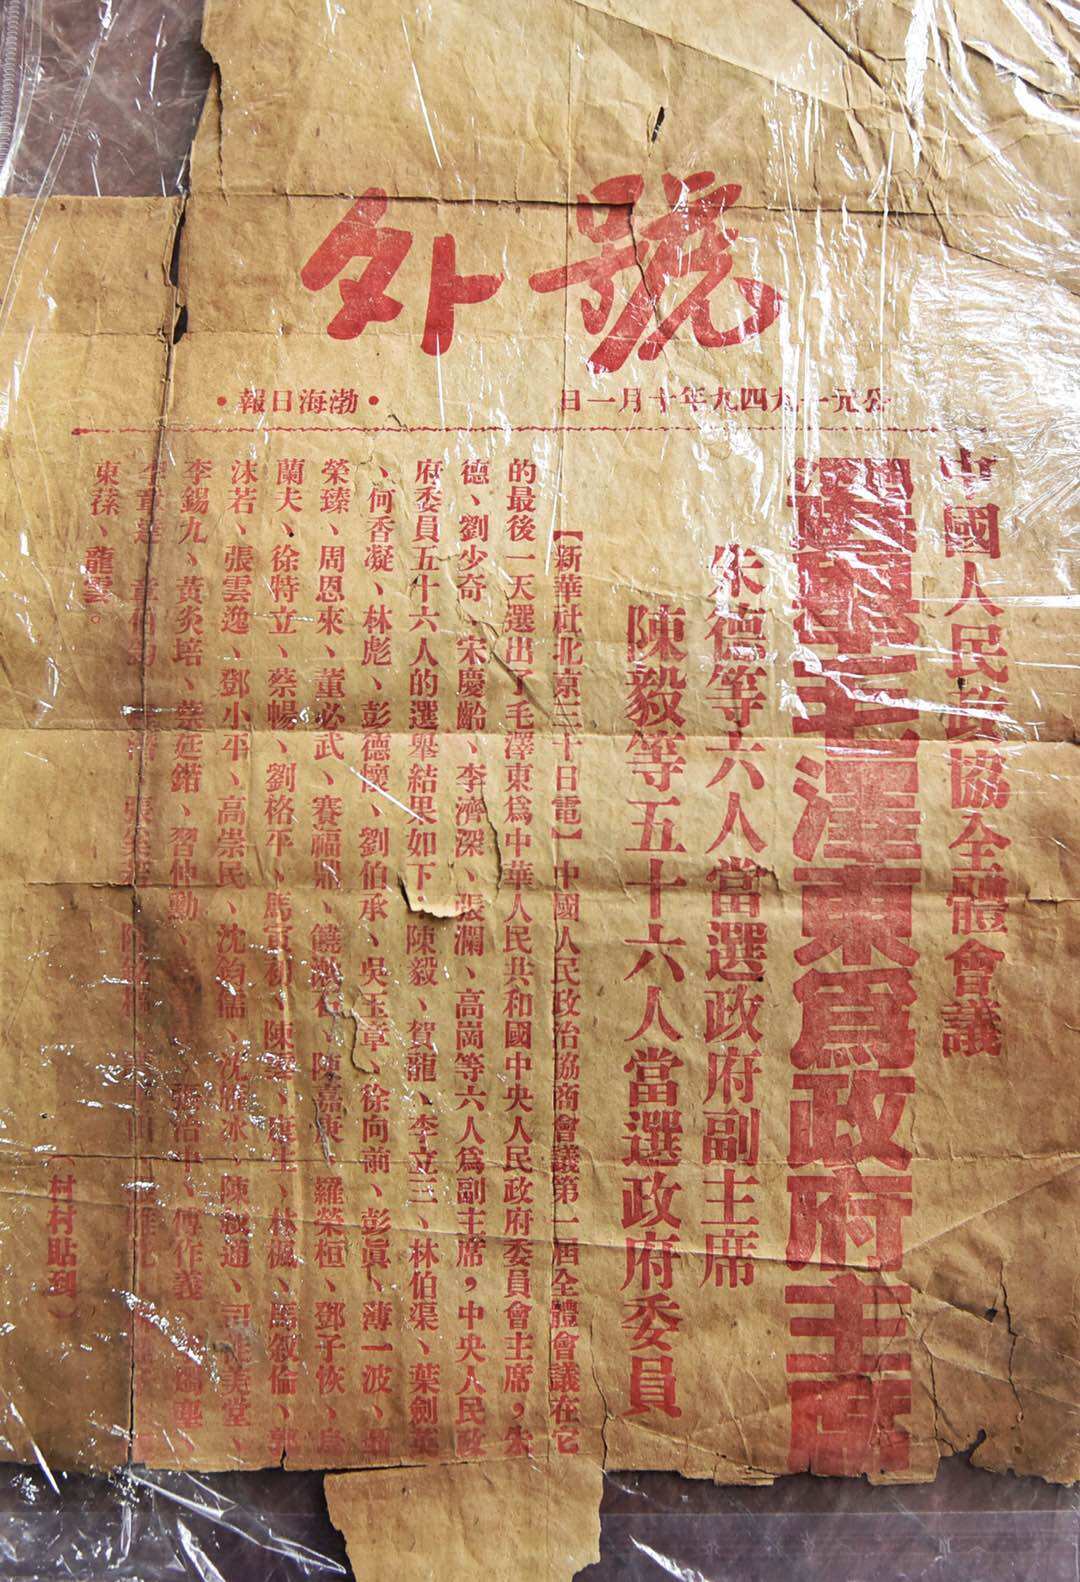 號外
公元一九四九年十月一日
·渤海日報·
中國人民政協全體會議
選舉毛澤東爲政府主席
朱德等六人當選政府副主席
陳毅等五十六人當選政府委員
【新華社北京三十日電】中國人民政治協商會議第一屆全體會議在它
的最後一天選出了毛澤東爲中華人民共和國中央人民政府委員會主席，朱
德、劉少奇、宋慶齡、李濟深、張瀾、高崗等六人爲副主席，中央人民政
府委員五十六人的選舉結果如下：陳毅、賀龍、李立三、林伯渠、葉劍英
、何香凝、林彪、彭德懷、劉伯承、吳玉章、徐向前、彭眞、薄一波、聶
榮臻、周恩來、董必武、賽福鼎、饒漱石、陳嘉庚、羅榮桓、鄧子恢、烏
蘭夫、徐特立、蔡暢、劉格平、馬寅初、陳雲、康生、林楓、馬敘倫、郭
沫若、張雲逸、鄧小平、高崇民、沈鈞儒、沈雁冰、陳叔通、司徒美堂、
李錫九、黃炎培、蔡廷鍇、習仲勳、張治中、傅作義、
李章達、章伯鈞、
東蓀、龍雲。
（村村貼到）